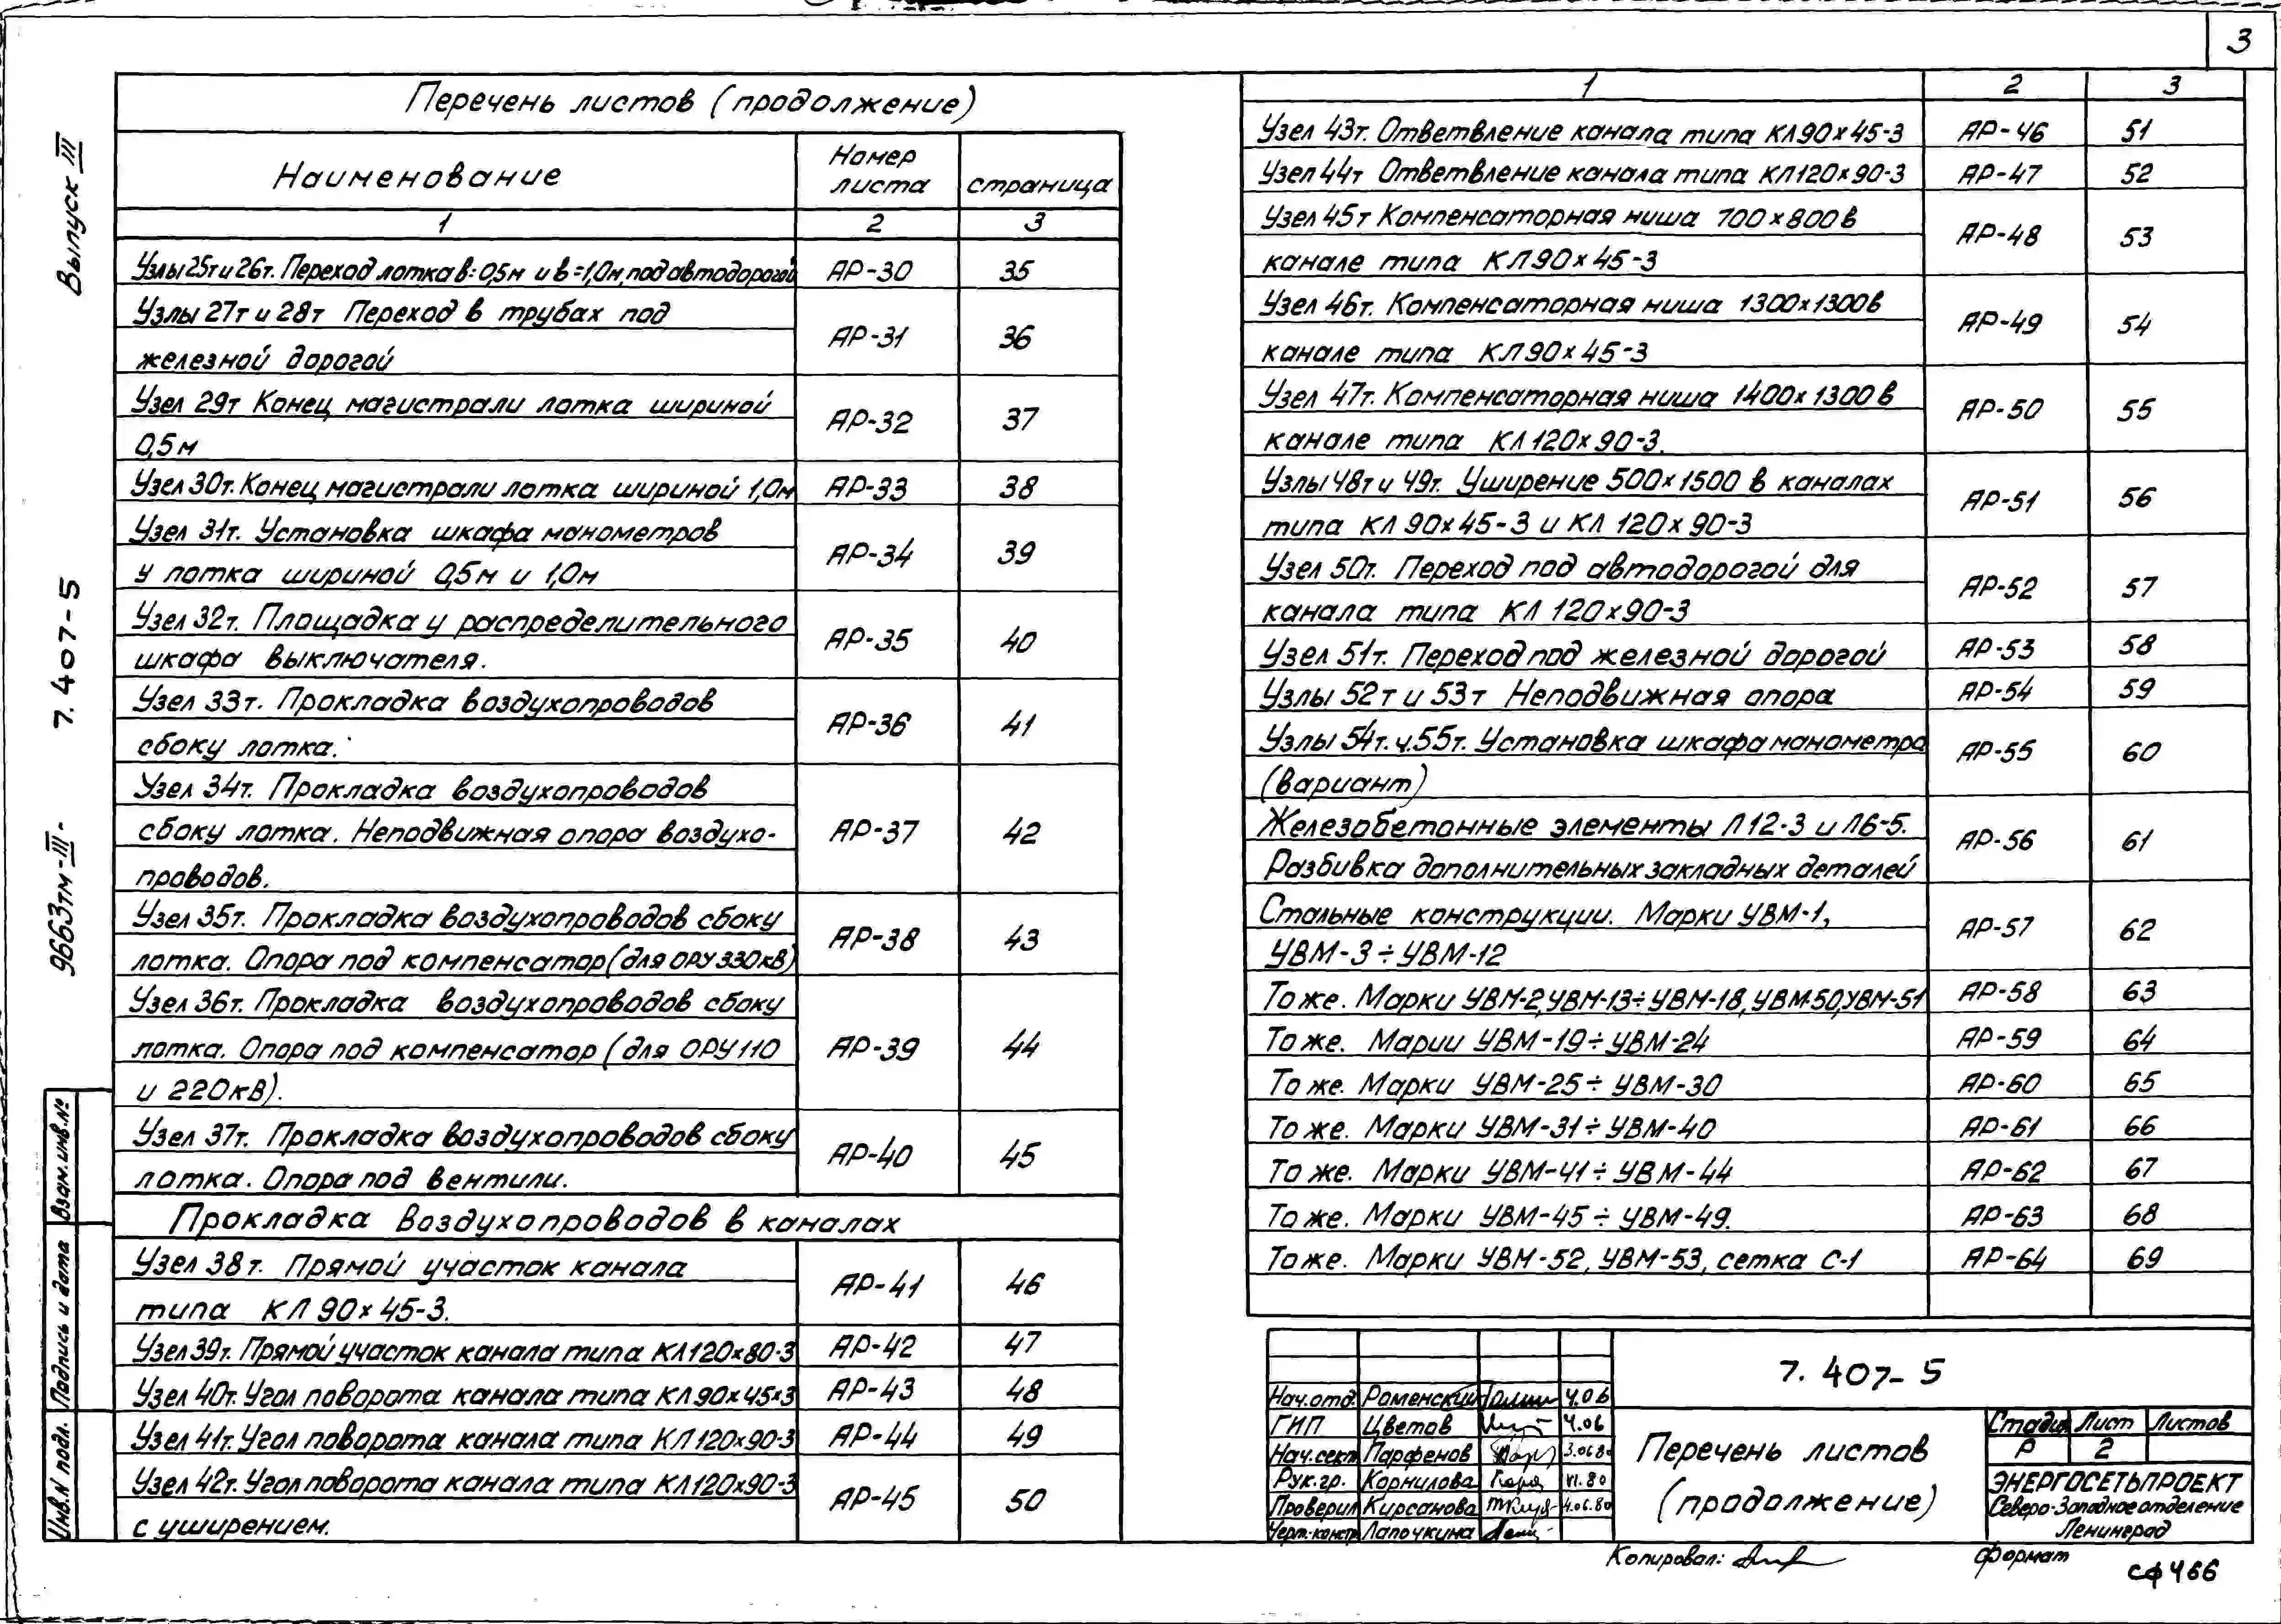 3
Перечень листов (продолжение)
Наименование
Номер листа
страница
1 2 3
Узлы 25т и 26т. Переход лотка в=0,5м и в=1,0м, под автодорогой АР-30 35
Узлы 27т и 28т Переход в трубах под
железной дорогой АР-31 36
Узел 29т Конец магистрали лотка шириной
0,5м АР-32 37
Узел 30т. Конец магистрали лотка шириной 1,0м АР-33 38
Узел 31т. Установка шкафа манометров
у лотка шириной 0,5м и 1,0м АР-34 39
Узел 32т. Площадка у распределительного
шкафа выключателя. АР-35 40
Узел 33т. Прокладка воздухопроводов
сбоку лотка. АР-36 41
Узел 34т. Прокладка воздухопроводов
сбоку лотка. Неподвижная опора воздухо-
проводов. АР-37 42
Узел 35т. Прокладка воздухопроводов сбоку
лотка. Опора под компенсатор (для ОРУ 330кВ) АР-38 43
Узел 36т. Прокладка воздухопроводов сбоку
лотка. Опора под компенсатор (для ОРУ 110
и 220кВ). АР-39 44
Узел 37т. Прокладка воздухопроводов сбоку
лотка. Опора под вентили. АР-40 45
Прокладка воздухопроводов в каналах
Узел 38т. Прямой участок канала
типа КЛ 90х45-3. АР-41 46
Узел 39т. Прямой участок канала типа КЛ120х80-3 АР-42 47
Узел 40т. Угол поворота канала типа КЛ90х45х3 АР-43 48
Узел 41т. Угол поворота канала типа КЛ120х90-3 АР-44 49
Узел 42т. Угол поворота канала типа КЛ120х90-3
с уширением. АР-45 50
1 2 3
Узел 43т. Ответвление канала типа КЛ90х45-3 АР-46 51
Узел 44т Ответвление канала типа КЛ120х90-3 АР-47 52
Узел 45т Компенсаторная ниша 700х800 в
канале типа КЛ90х45-3 АР-48 53
Узел 46т. Компенсаторная ниша 1300х1300 в
канале типа КЛ90х45-3 АР-49 54
Узел 47т. Компенсаторная ниша 1400х1300 в
канале типа КЛ120х90-3. АР-50 55
Узлы 48т и 49т. Уширение 500х1500 в каналах
типа КЛ 90х45-3 и КЛ 120х90-3 АР-51 56
Узел 50т. Переход под автодорогой для
канала типа КЛ 120х90-3 АР-52 57
Узел 51т. Переход под железной дорогой АР-53 58
Узлы 52т и 53т Неподвижная опора АР-54 59
Узлы 54т. и 55т. Установка шкафа манометра
(вариант) АР-55 60
Железобетонные элементы Л12-3 и Л6-5.
Разбивка дополнительных закладных деталей АР-56 61
Стальные конструкции. Марки УВМ-1,
УВМ-3÷УВМ-12 АР-57 62
То же. Марки УВМ-2,УВМ-13÷УВМ-18,УВМ-50,УВМ-51 АР-58 63
То же. Марии УВМ-19÷УВМ-24 АР-59 64
То же. Марки УВМ-25÷УВМ-30 АР-60 65
То же. Марки УВМ-31÷УВМ-40 АР-61 66
То же. Марки УВМ-41÷УВМ-44 АР-62 67
То же. Марки УВМ-45÷УВМ-49. АР-63 68
То же. Марки УВМ-52, УВМ-53, сетка С-1 АР-64 69
7.407-5
Перечень листов
(продолжение)
Стадия Лист Листов
Р 2
ЭНЕРГОСЕТЬПРОЕКТ
Северо-Западное отделение
Ленинград
Нач.отд. Роменский 4.06
ГИП Цветов 4.06
Нач.сект. Парфенов 3.06.80
Рук.гр. Корнилова VI.80
Проверил Кирсанова 4.06.80
Черт.-констр. Лапочкина
Копировал:
Формат
сф 466
Выпуск III
7.407-5
9663тм-III-
Взам.инв.№
Подпись и дата
Инв.N подл.